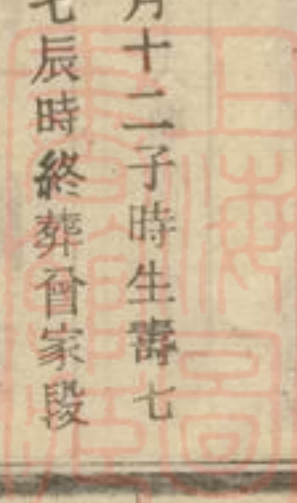 月十二子時生壽七
七辰時終葬曾家段
上海圖